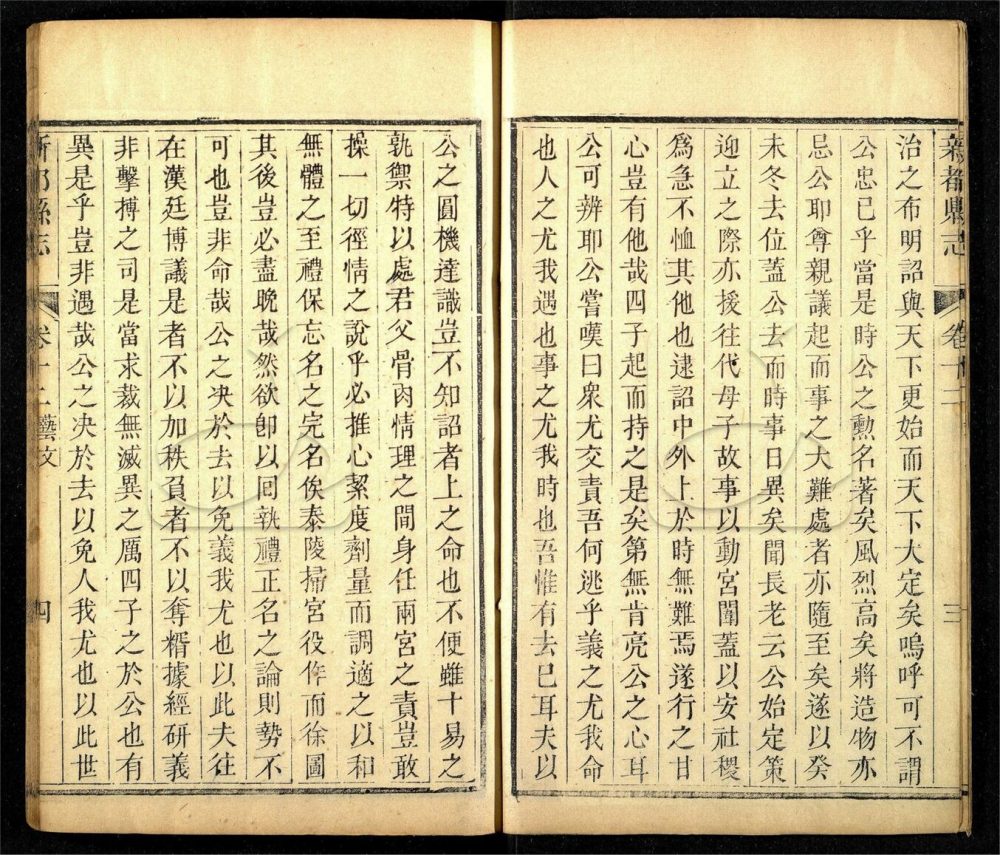 新都縣志
卷十二
三
治之布明詔與天下更始而天下大定矣嗚呼可不謂
公忠已乎當是時公之勳名著矣風烈高矣將造物亦
忌公耶尊親議起而事之大難處者亦隨至矣遂以癸
未冬去位蓋公去而時事日異矣聞長老云公始定策
迎立之際亦援往代母子故事以動宮闈蓋以安社稷
為急不恤其他也逮詔中外上於時無難焉遂行之甘
心豈有他哉四子起而持之是矣第無肯亮公之心耳
公可辨耶公嘗嘆曰衆尤交責吾何逃乎義之尤我命
也人之尤我遇也事之尤我時也吾惟有去已耳夫以
公之圓機達識豈不知詔者上之命也不便雖十易之
孰禦特以處君父骨肉情理之間身任兩宮之責豈敢
操一切徑情之說乎必推心絜度劑量而調適之以和
無體之至禮保忘名之完名俟泰陵掃宮役作而徐圖
其後豈必盡晚哉然欲卽以囘執禮正名之論則勢不
可也豈非命哉公之决於去以免義我尤也以此夫往
在漢廷博議是者不以加秩負者不以奪糈據經研義
非擊搏之司是當求裁無滅異之厲四子之於公也有
異是乎豈非遇哉公之决於去以免人我尤也以此世
新都縣志
卷十二 藝文
四